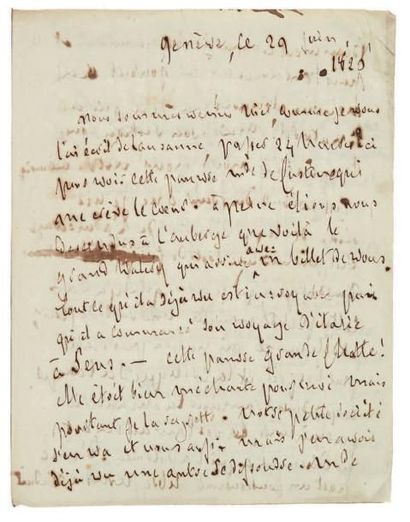 Genève, ce 29 juin
182
nous sommes venus ici, comme je vous
l'ai écrit de Lausanne, passer 24 heures ici
pour voir cette pauvre mde de Custine qui
me crève le cœur. à peine étions nous
descendus à l'auberge que voilà le
grand qui arrive avec un billet de vous.
tout ce qu'il a déjà vu est incroyable parce
qu'il a commencé son voyage d'italie
à Sens. — cette pauvre grande Chatte!
elle étoit bien méchante pour moi mais
pourtant je la regrette. notre petite société
s'en va et nous aussi. mais j'en avois
déjà vu une autre se dissoudre. mde